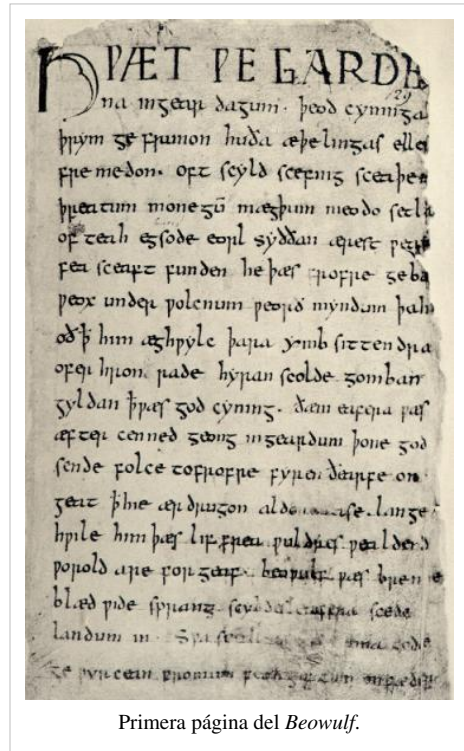 HǷÆT ǷE GARDE
29
na ingear dagum. þeod cyninga
þrym ge frunon huða æþelingas elle
fremedon. oft scyld scefing sceaþe
þreatum monegū mægþum meodo setla
of teah egsode eorl syððan ærest ƿear
fea sceaft funden he þæs frofre geba
ƿeox under ƿolcnum ƿeorð myndum þah
oð ꝥ him æghƿylc þara ymb sittendra
ofer hron rade hyran scolde gomban
gyldan ꝥ ƿæs god cyning. ðæm eafera ƿæs
æfter cenned geong ingeardum þone god
sende folce tofrofre fyren ðearfe on
geat ꝥ hie ær drugon aldor ase. lange
hƿile him þæs liffrea ƿuldres ƿealdend
ƿorold are forgeaf. beoƿulf ƿæs breme
blæd ƿide sprang scyldes eafera scede
landum in. Sƿa gode
ge ƿyrcean fromum feoh giftum
Primera página del Beowulf.